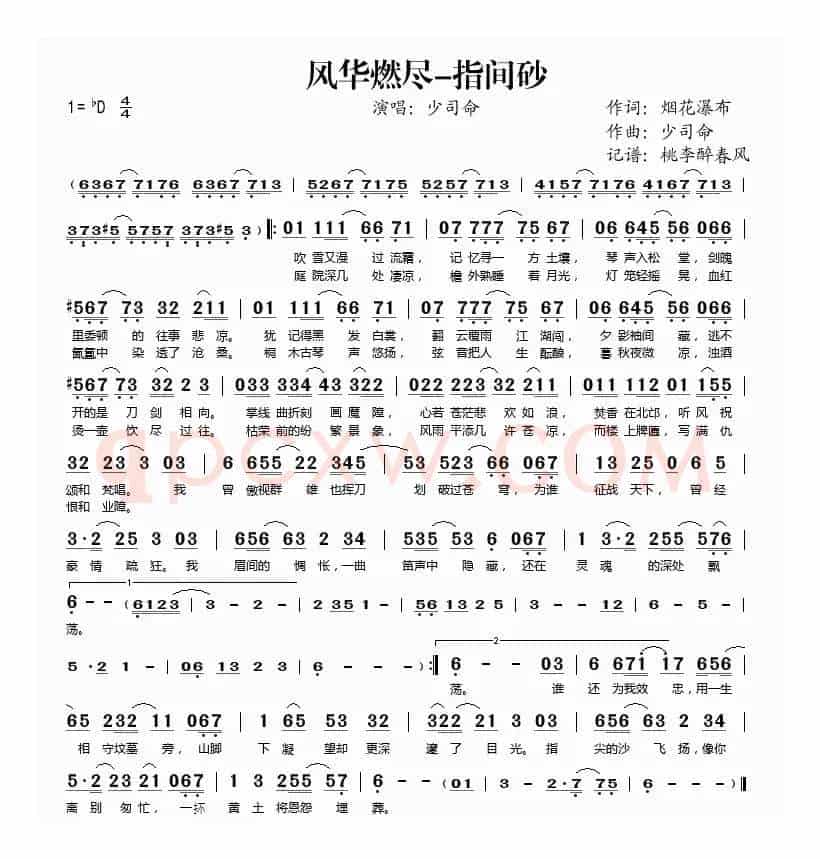 风华燃尽-指间砂
1=♭D 4/4 演唱：少司命 作词：烟花瀑布
作曲：少司命
记谱：桃李醉春风
(6367 7176 6367 713 | 5267 7175 5257 713 | 4157 7176 4167 713
373#5 5757 373#5 3) ‖: 01 111 66 71 | 07 777 75 67 | 06 645 56 066
吹 雪又漫 过 流霜， 记 忆寻一 方 土壤， 琴 声入松 堂，剑魄
庭 院深几 处 凄凉， 檐 外熟睡 着 月光， 灯 笼轻摇 晃，血红
#567 73 32 211 | 01 111 66 71 | 07 777 75 67 | 06 645 56 066
里委顿 的 往事 悲 凉。 犹 记得黑 发 白裳， 翻 云覆雨 江 湖闯， 夕 影袖间 藏，逃不
氤氲中 染 透了 沧 桑。 桐 木古琴 声 悠扬， 弦 音把人 生 酝酿， 暮 秋夜微 凉，浊酒
#567 73 32 2 3 | 033 334 43 322 | 022 223 32 211 | 011 112 01 155
开的是 刀 剑 相 向。 掌线 曲折刻 画 魔障， 心若 苍茫悲 欢 如 浪， 焚香 在北邙，听 风 祝
烫一壶 饮 尽 过 往。 枯荣 前的纷 繁 景象， 风雨 平添几 许 苍 凉， 而楼 上牌匾，写 满 仇
qpcxw.com
32 23 3 03 | 6 655 22 345 | 53 223 66 067 | 1325 0 6 04
颂和 梵唱。 我 曾 傲视群 雄 也挥刀 划 破过苍 穹，为谁 征战 天下，曾 经
恨和 业障。
3·2 25 3 03 | 656 63 2 34 | 535 53 6 067 | 1 3·2 255 576
豪 情 疏 狂。我 眉间的 惆 怅，一曲 笛声中 隐 藏，还在 灵 魂 的深处 飘
1
6 - - (6123 | 3 - 2 - | 2351 - - | 56 13 25 | 3 - -2 | 6 - 5 -
荡。
2
5 ·2 1 - | 06 13 2 3 | 6 - - -) :‖ 6 - - 03 | 6 671 17 656
荡。 谁 还 为我效 忠，用一生
65 232 11 067 | 1 65 53 32 | 322 21 3 03 | 656 63 2 34
相 守坟墓 旁，山脚 下 凝 望却 更深 邃 了 目 光。指 尖的沙 飞 扬，像你
5·2 23 21 067 | 1 3 255 57 | 6 - - (01 | 3 - 2·7 775 | 6 - - -)
离 别 匆 忙， 一抔 黄 土 将恩怨 埋 葬。